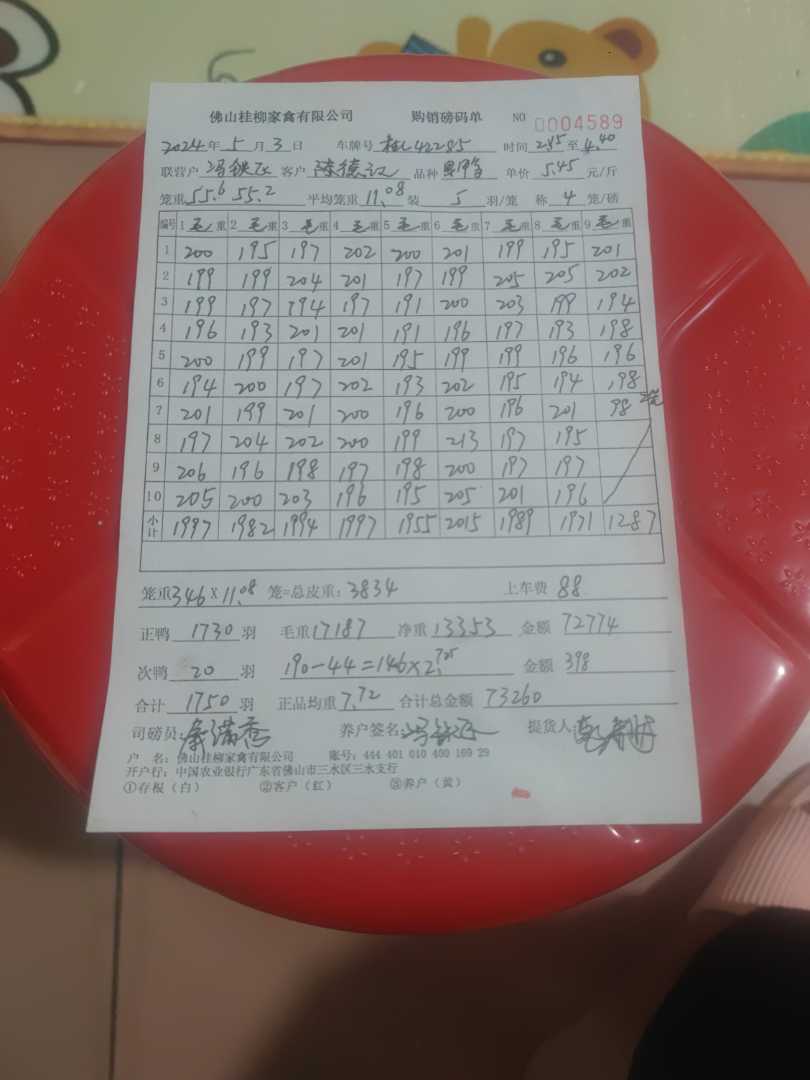 佛山桂柳家禽有限公司 购销磅码单 NO 0004589
2024年5月3日 车牌号 桂L42285 时间 2:85至4.40
联营户 冯铁 客户 陈德 品种 单价 5.45 元/斤
笼重 55.6 55.2 平均笼重 11.08 装 5 羽/笼 称 4 笼/磅
编号 1毛重 2毛重 3毛重 4毛重 5毛重 6毛重 7毛重 8毛重 9毛重
1 200 195 197 202 200 201 199 195 201
2 199 199 204 201 197 199 205 205 202
3 199 197 194 197 191 200 203 199 194
4 196 193 201 201 191 196 197 193 198
5 200 199 197 201 195 199 199 196 196
6 194 200 197 202 193 202 195 194 198
7 201 199 201 200 196 200 196 201 98 2笼
8 197 204 202 200 199 213 197 195
9 206 196 198 197 198 200 197 197
10 205 200 203 196 195 205 201 196
小计 1997 1982 1994 1997 1955 2015 1989 1971 1287
笼重346X11.08 笼=总皮重:3834 上车费 88
正鸭 1730 羽 毛重17187 净重13353 金额 72774
次鸭 20 羽 190-44=146×2.725 金额 398
合计 1750 羽 正品均重 7.72 合计总金额 73260
司磅员: 养户签名: 提货人
户 名:佛山桂柳家禽有限公司 账号:444 401 010 400 169 29
开户行:中国农业银行广东省佛山市三水区三水支行
①存根(白) ②客户(红) ③养户(黄)